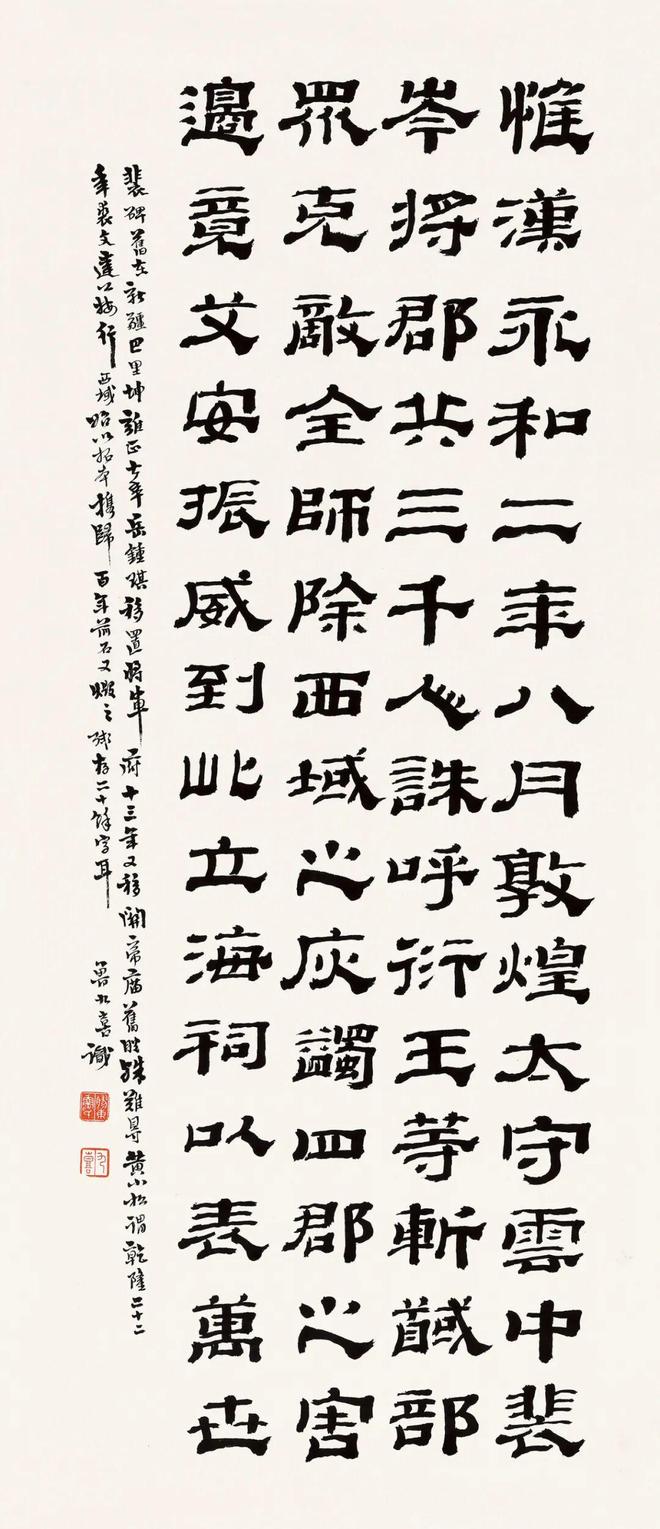 惟漢永和二年八月敦煌太守雲中裴
岑將郡共三千人誅呼衍王等斬馘部
眾克敵全師除西域之灰蠲四郡之害
邊竟艾安振威到此立海祠以表萬世
裴碑舊在新疆巴里坤雍正七年岳鍾琪移置將軍府十三年又移關帝廟舊時殊難得黃小松謂乾隆二十二
年裘文達公按行西域始以拓本攜歸百年前石又毀之殘存二十餘字耳
魯九喜識